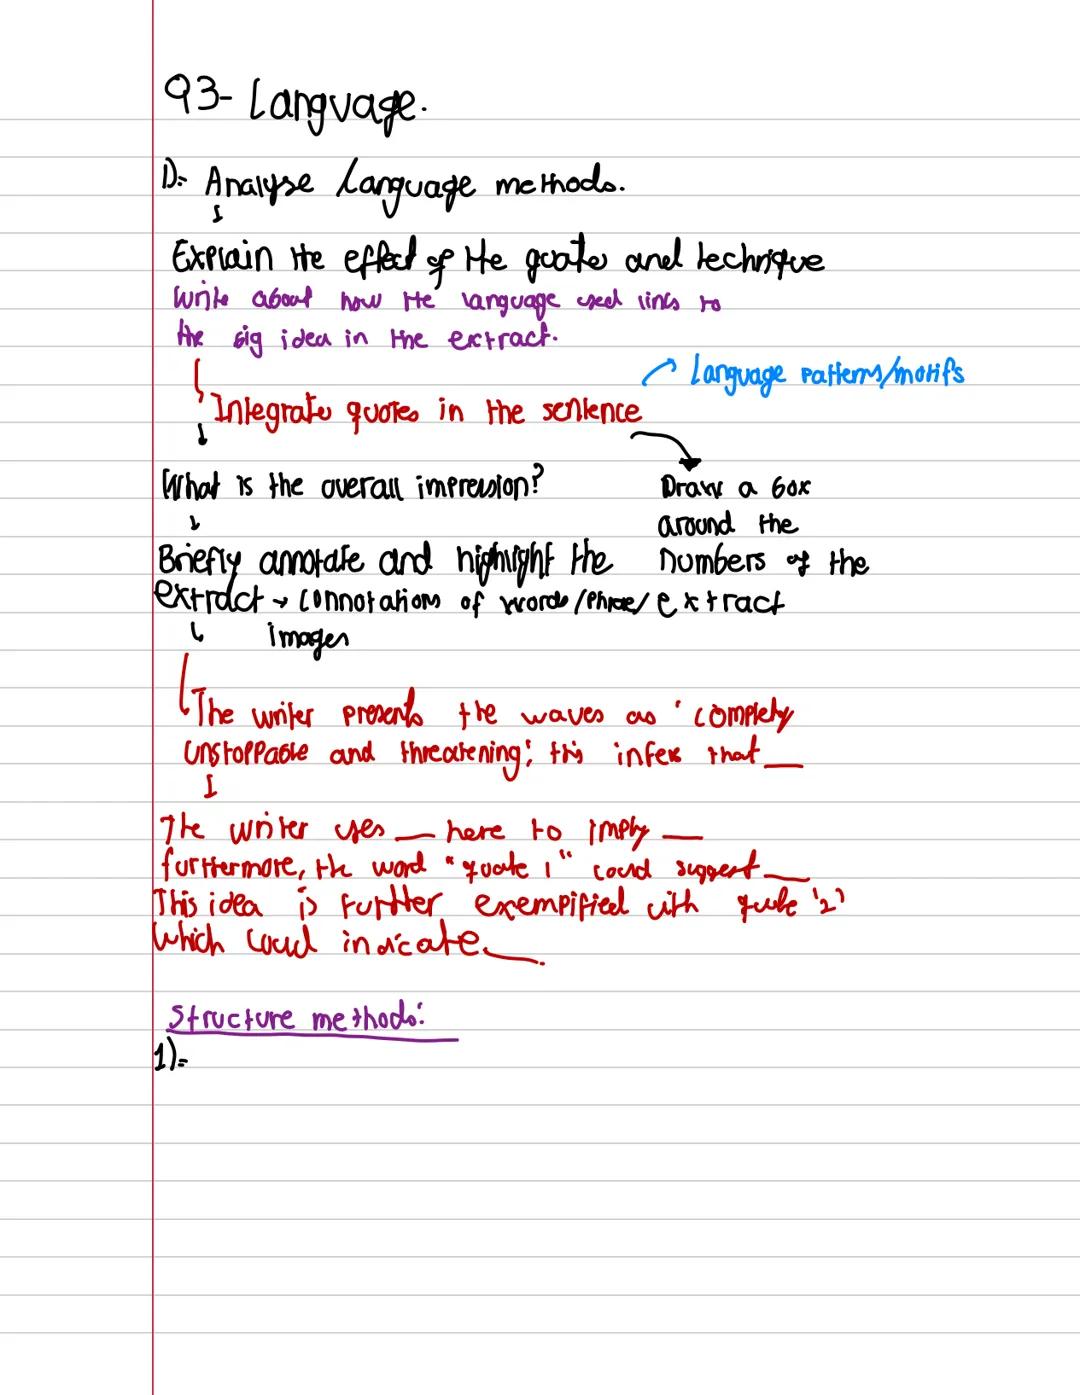 Q3- Language.
1):- Analyse language methods.
Explain the effect of the quote and technique
Write about how the language used links to
the big idea in the extract.
Language patterns/motifs
Integrate quotes in the sentence
What is the overall impression?
Draw a box
around the
numbers of the
extract
Briefly annotate and highlight the
extract → connotations of words/phrases/
images
The writer presents the waves as 'completly
unstoppable and threatening'; this infers that __
The writer uses __ here to imply __
furthermore, the word "quote 1" could suggest __
This idea is further exempified with quote '2'
which could indicate __.
Structure methods:
1):-